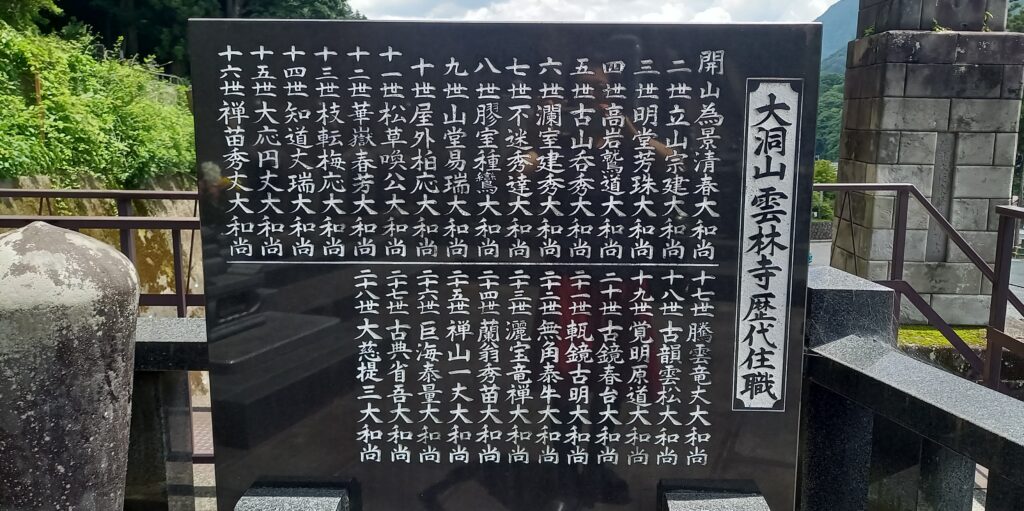 大洞山 雲林寺歴代住職
開山為景清春大和尚
二世立山宗建大和尚
三世明堂芳珠大和尚
四世高岩鷲道大和尚
五世古山呑秀大和尚
六世瀾室建秀大和尚
七世不迷秀達大和尚
八世膠室種鸞大和尚
九世山堂易瑞大和尚
十世屋外柏応大和尚
十一世松草喚公大和尚
十二世華嶽春芳大和尚
十三世枝転梅応大和尚
十四世知道丈瑞大和尚
十五世大応円丈大和尚
十六世禅苗秀丈大和尚
十七世騰雲竜丈大和尚
十八世古韻雲松大和尚
十九世覚明原道大和尚
二十世古鏡春台大和尚
二十一世甎鏡古明大和尚
二十二世無角泰牛大和尚
二十三世灑宝音禅大和尚
二十四世蘭翁秀苗大和尚
二十五世禅山一丈大和尚
二十六世巨海泰量大和尚
二十七世古典省吾大和尚
二十八世大慈提三大和尚